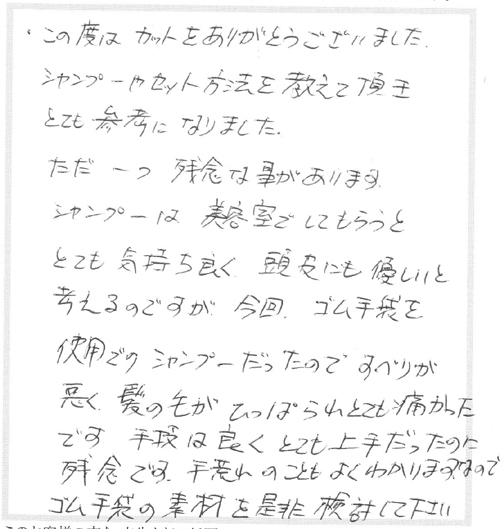 ・この度は カットをありがとうございました.
シャンプーやセット方法を 教えて頂き
とても 参考に なりました.
ただ 一つ 残念な事があります.
シャンプーは 美容室で してもらうと
とても 気持ち良く 頭皮にも 優しいと
考えるのですが 今回. ゴム手袋を
使用での シャンプーだったので すべりが
悪く. 髪の毛が ひっぱられとても痛かった
です 手段は良く とても上手だったのに
残念です. 手荒れのことも よくわかりますなので
ゴム手袋の 素材を是非 検討して下さい